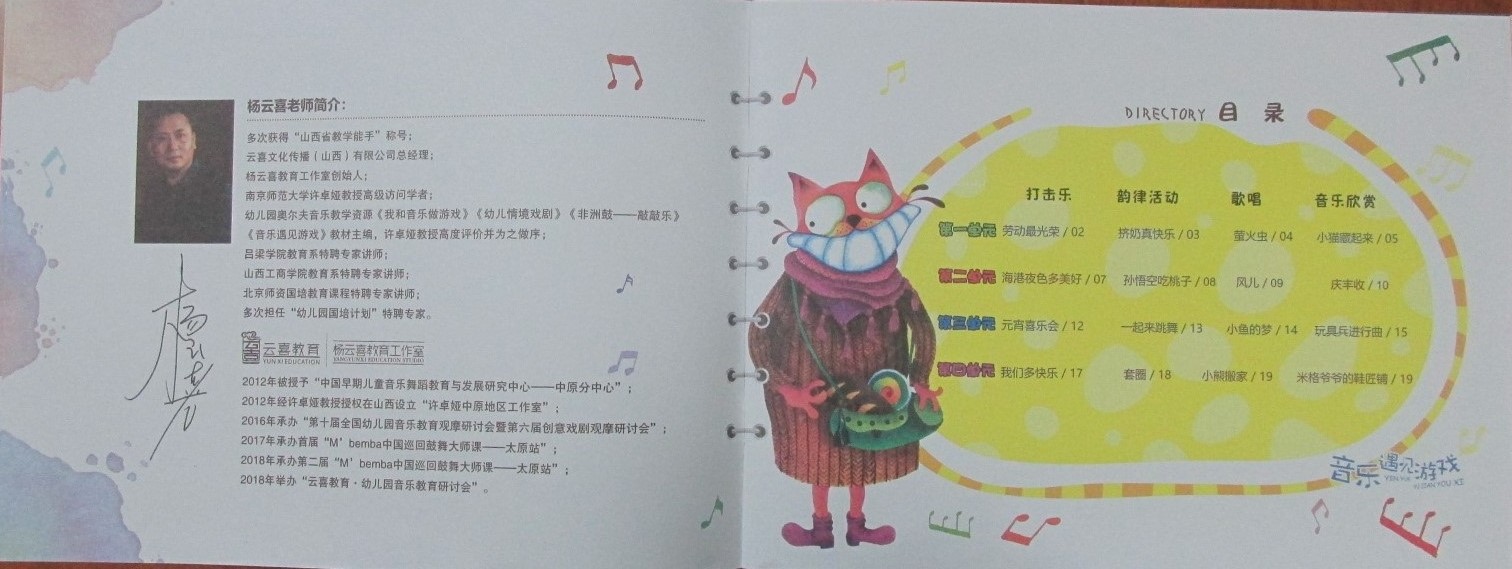 杨云喜老师简介：
多次获得“山西省教学能手”称号；
云喜文化传播（山西）有限公司总经理；
杨云喜教育工作室创始人；
南京师范大学许卓娅教授高级访问学者；
幼儿园奥尔夫音乐教学资源《我和音乐做游戏》《幼儿情境戏剧》《非洲鼓——敲敲乐》
《音乐遇见游戏》教材主编，许卓娅教授高度评价并为之做序；
吕梁学院教育系特聘专家讲师；
山西工商学院教育系特聘专家讲师；
北京师资国培教育课程特聘专家讲师；
多次担任“幼儿园国培计划”特聘专家。
杨云喜
云喜教育 杨云喜教育工作室
YUN XI EDUCATION YANGYUNXI EDUCATION STUDIO
2012年被授予“中国早期儿童音乐舞蹈教育与发展研究中心——中原分中心”；
2012年经许卓娅教授授权在山西设立“许卓娅中原地区工作室”；
2016年承办“第十届全国幼儿园音乐教育观摩研讨会暨第六届创意戏剧观摩研讨会”；
2017年承办首届“M’bemba中国巡回鼓舞大师课——太原站”；
2018年承办第二届“M’bemba中国巡回鼓舞大师课——太原站”；
2018年举办“云喜教育·幼儿园音乐教育研讨会”。
DIRECTORY 目 录
打击乐 韵律活动 歌唱 音乐欣赏
第一单元 劳动最光荣 / 02 挤奶真快乐 / 03 萤火虫 / 04 小猫藏起来 / 05
第二单元 海港夜色多美好 / 07 孙悟空吃桃子 / 08 风儿 / 09 庆丰收 / 10
第三单元 元宵喜乐会 / 12 一起来跳舞 / 13 小鱼的梦 / 14 玩具兵进行曲 / 15
第四单元 我们多快乐 / 17 套圈 / 18 小熊搬家 / 19 米格爷爷的鞋匠铺 / 19
音乐遇见游戏
YIN YUE YU JIAN YOU XI